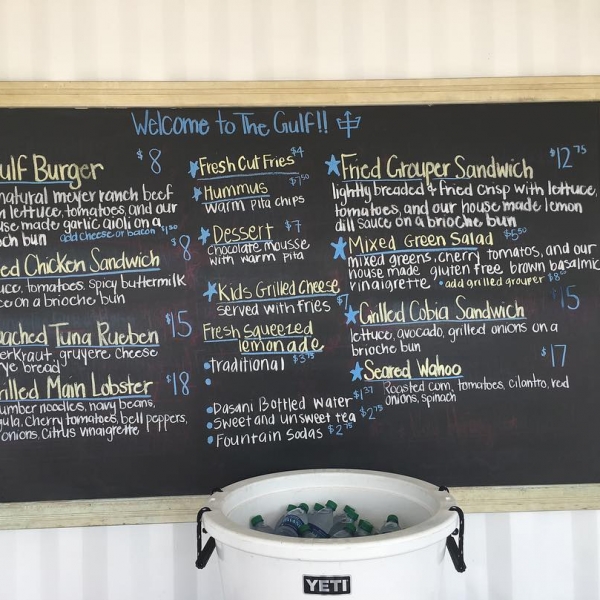 Welcome to The Gulf!!
ulf Burger $8
natural meyer ranch beef
lettuce, tomatoes, and our
se made garlic aioli on a
och bun add cheese or bacon $1.50
ed Chicken Sandwich $8
uce, tomatoes, spicy buttermilk
ce on a brioche bun
oached Tuna Rueben $15
erkraut, gruyere cheese
rye bread
rilled Main Lobster $18
umber noodles, navy beans,
gula, cherry tomatoes, bell peppers,
onions, citrus vinaigrette
Fresh Cut Fries $4
Hummus $7.50
warm pita chips
Dessert $7
chocolate mousse
with warm pita
Kids Grilled Cheese
served with fries $7
Fresh squeezed
lemonade
•traditional $3.75
•
•Dasani Bottled water $1.37
•Sweet and unsweet tea $2.75
•Fountain Sodas $2.75
Fried Grouper Sandwich $12.75
lightly breaded & fried crisp with lettuce,
tomatoes, and our house made lemon
dill sauce on a brioche bun
Mixed Green Salad $5.50
mixed greens, cherry tomatos, and our
house made gluten free brown basalmic
vinaigrette •add grilled grouper $8
Grilled Cobia Sandwich $15
lettuce, avocado, grilled onions on a
brioche bun
Seared Wahoo $17
Roasted corn, tomatoes, cilantro, red
onions, spinach
YETI